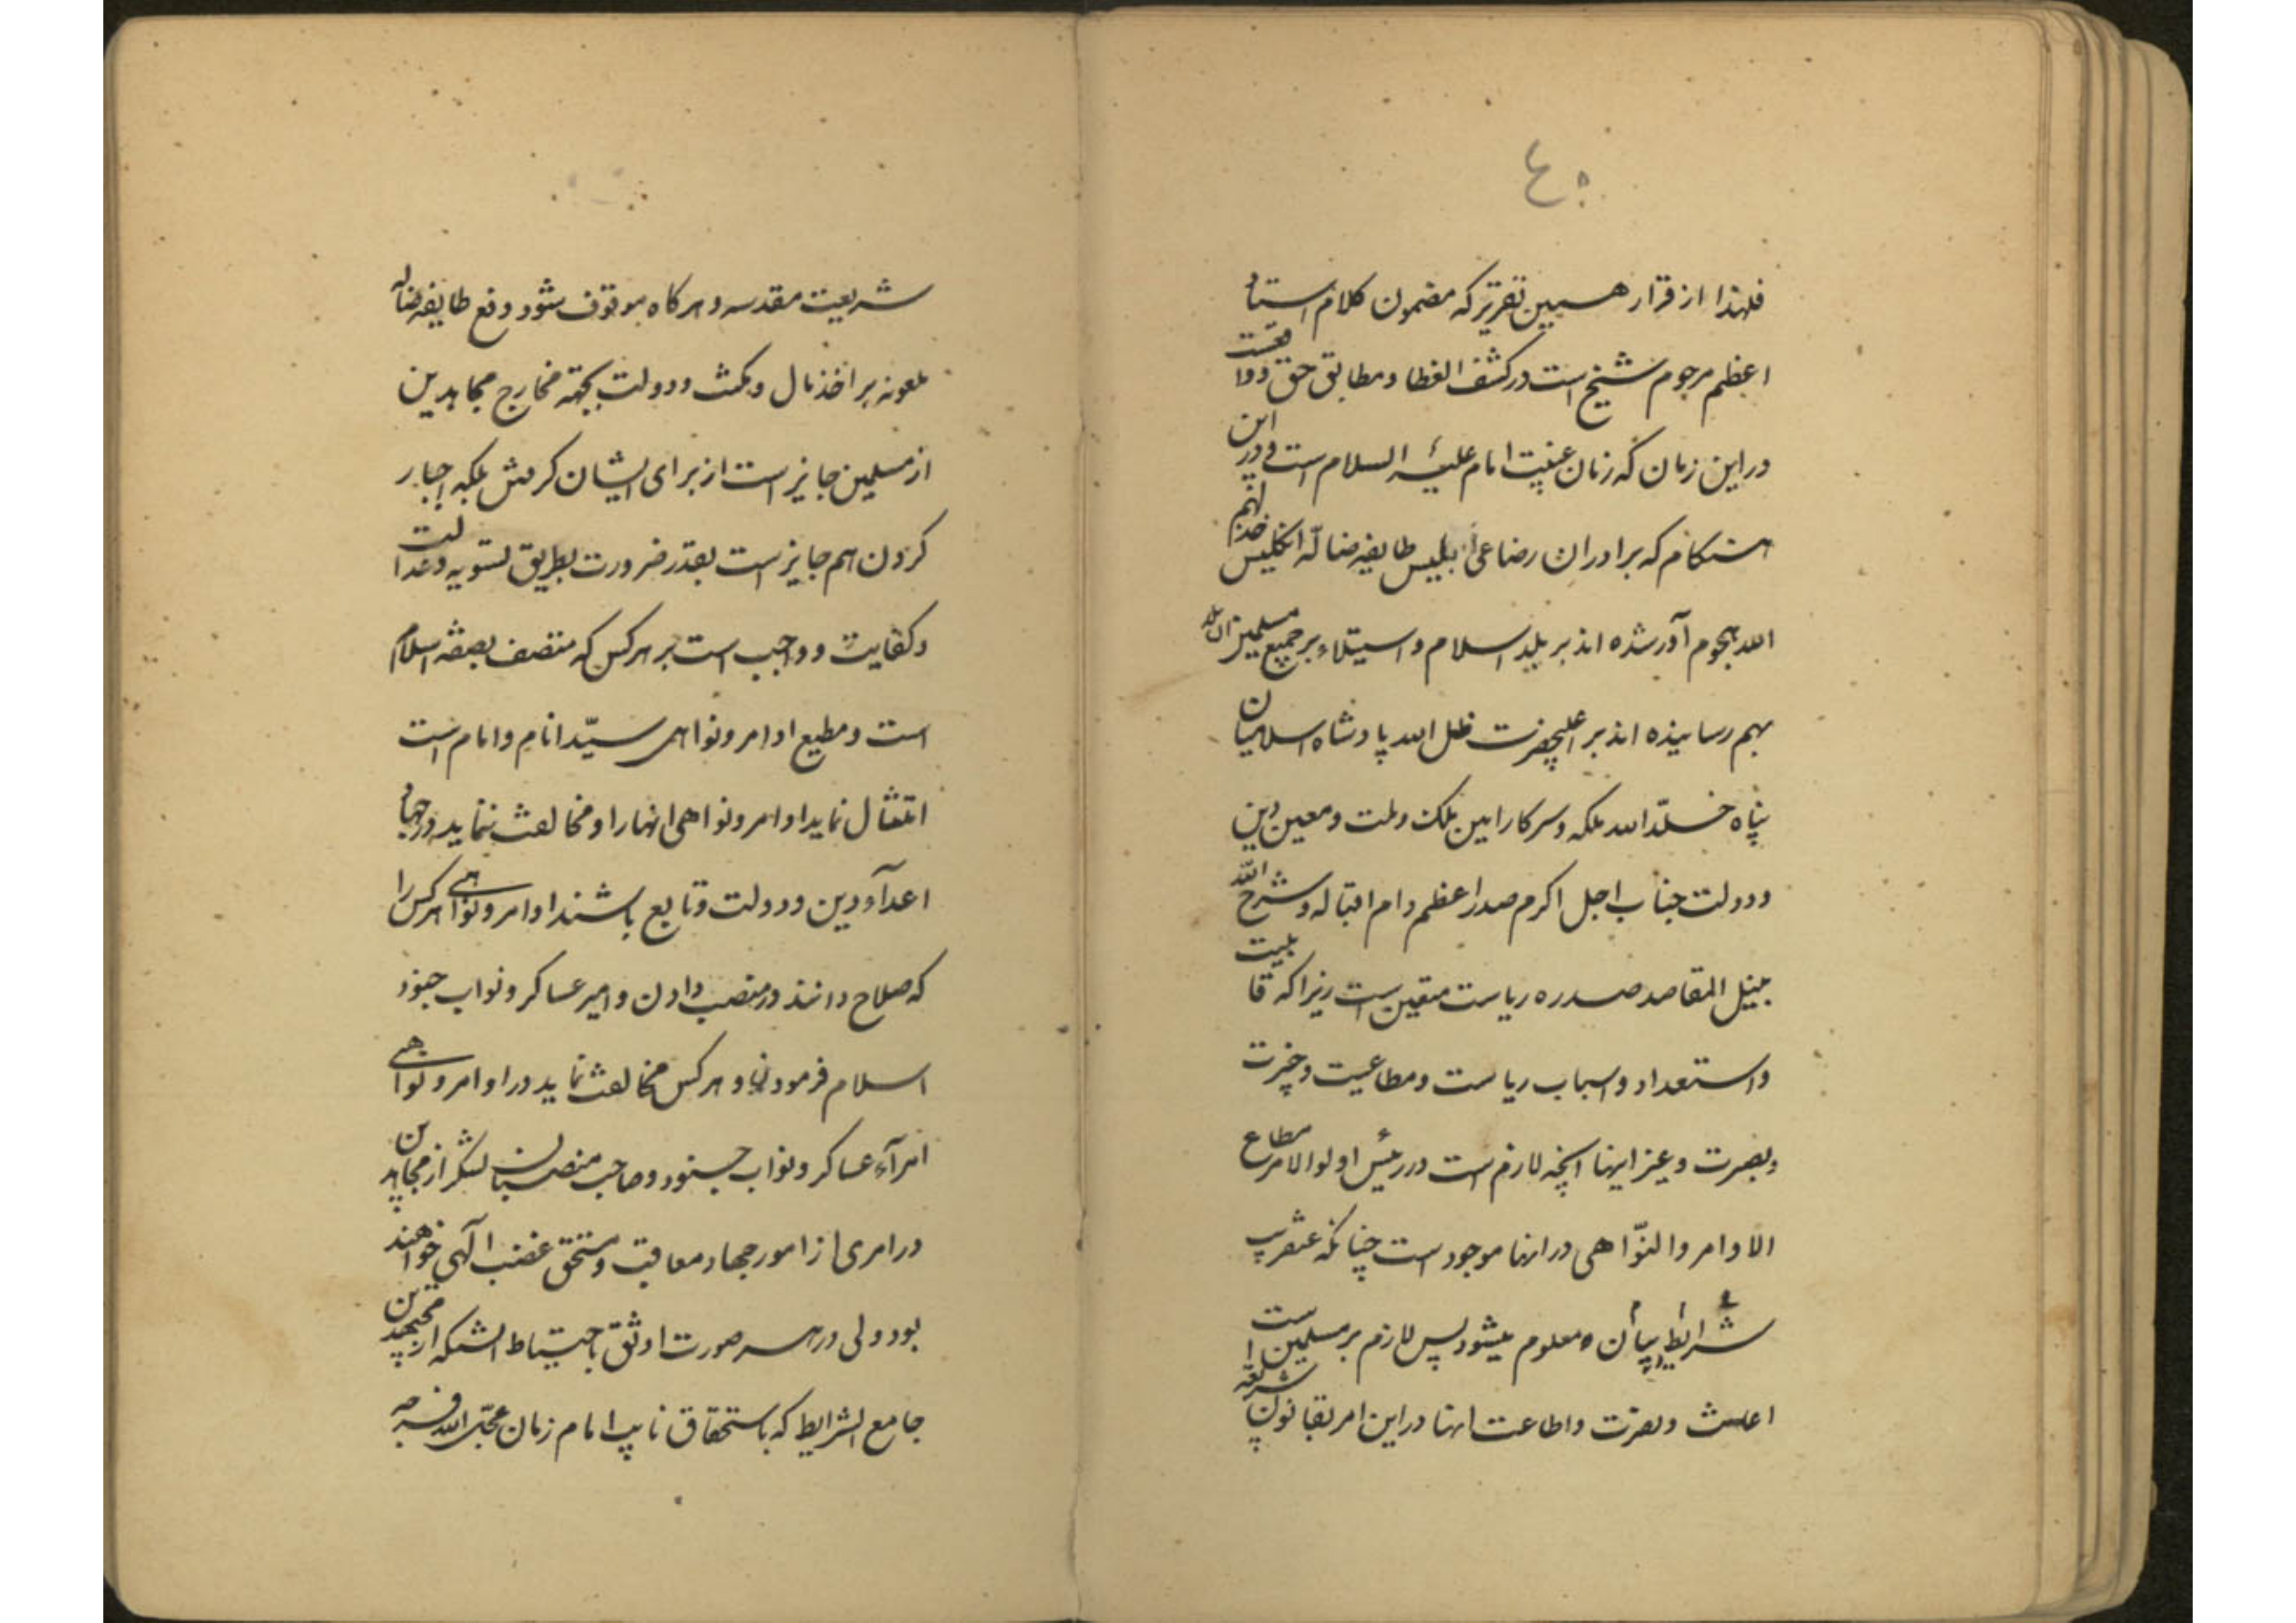 ٤٠
فلهذا از قرار همین تقریر که مضمون کلام استاد
اعظم مرحوم شیخ است در کشف الغطا و مطابق حق و واقعست
در این زمان که زمان غیبت امام علیه السلام است و در این
هنگام که برادران رضاعی ابلیس طایفه ضالّه انگلیس خذلهم
الله هجوم آور شده اند بر بلد اسلام و استیلاء بر جمیع مسلمین آن بلد
بهم رسانیده اند بر اعلیحضرت ظل الله پادشاه اسلامیان
پناه خلّد الله ملکه و سرکار امین ملک و ملت و معین دین
و دولت جناب اجل اکرم صدر اعظم دام اقباله و شرح الله
بنیل المقاصد صدره ریاست متعین است زیرا که قابلیت
و استعداد و اسباب ریاست و مطاعیت و خبرت
و بصیرت و غیر اینها آنچه لازم است در رئیس اولو الامر مطاع
الاوامر والنّواهی در اینها موجود است چنانکه عنقریب
شرایط بیان معلوم میشود پس لازم بر مسلمین است
اعانت و نصرت و اطاعت اینها در این امر بقانون شریعة
شریعت مقدسه و هرکاه موقوف شود دفع طایفه ضاله
ملعونه بر اخذ مال و مکث و دولت بجهة مخارج مجاهدین
از مسلمین جایز است از برای ایشان کرفتن بلکه اجبار
کردن هم جایز است بقدر ضرورت بطریق تسویه و عدالت
و کفایت و واجب است بر هر کس که متصف بصفة اسلام
است و مطیع اوامر و نواهی سیّد انام و امام است
امتثال نماید اوامر و نواهی اینها را و مخالفت ننماید در جهاد
اعدآء دین و دولت و تابع باشند اوامر و نواهی هر کس را
که صلاح دانند در منصب دادن و امیر عساکر و نواب جنود
اسلام فرمودن و هر کس مخالفت نماید در اوامر و نواهی
امرآء عساکر و نواب جنود و صاحب منصبان لشکر از مجاهدین
در امری از امور جهاد معاقب و مستحق غضب الهی خواهند
بود ولی در هر صورت اوثق باحتیاط اینکه از مجتهدین
جامع الشرایط که باستحقاق نایب امام زمان عجّل الله فرجه